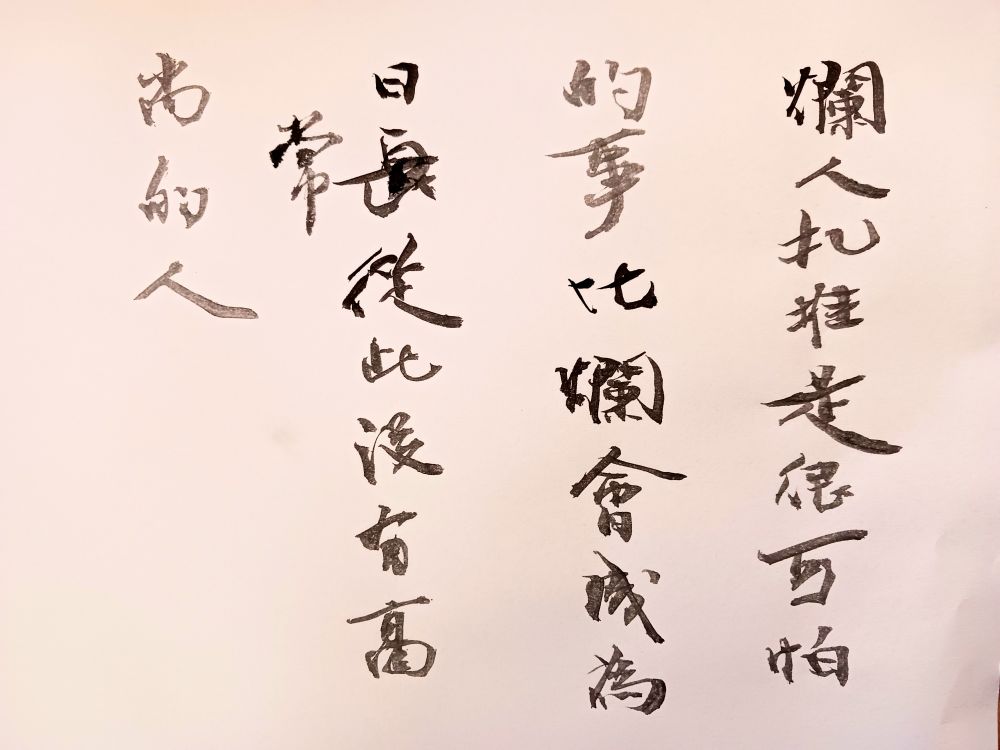 爛人扎堆是很可怕
的事比爛會成為
日長從此沒有高
常
尚的人